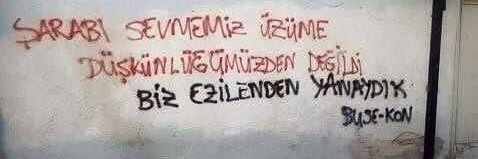 ŞARABI SEVMEMİZ ÜZÜME
DÜŞKÜNLÜĞÜMÜZDEN DEĞİLDİ
BİZ EZİLENDEN YANAYDIK
BUJE-KON